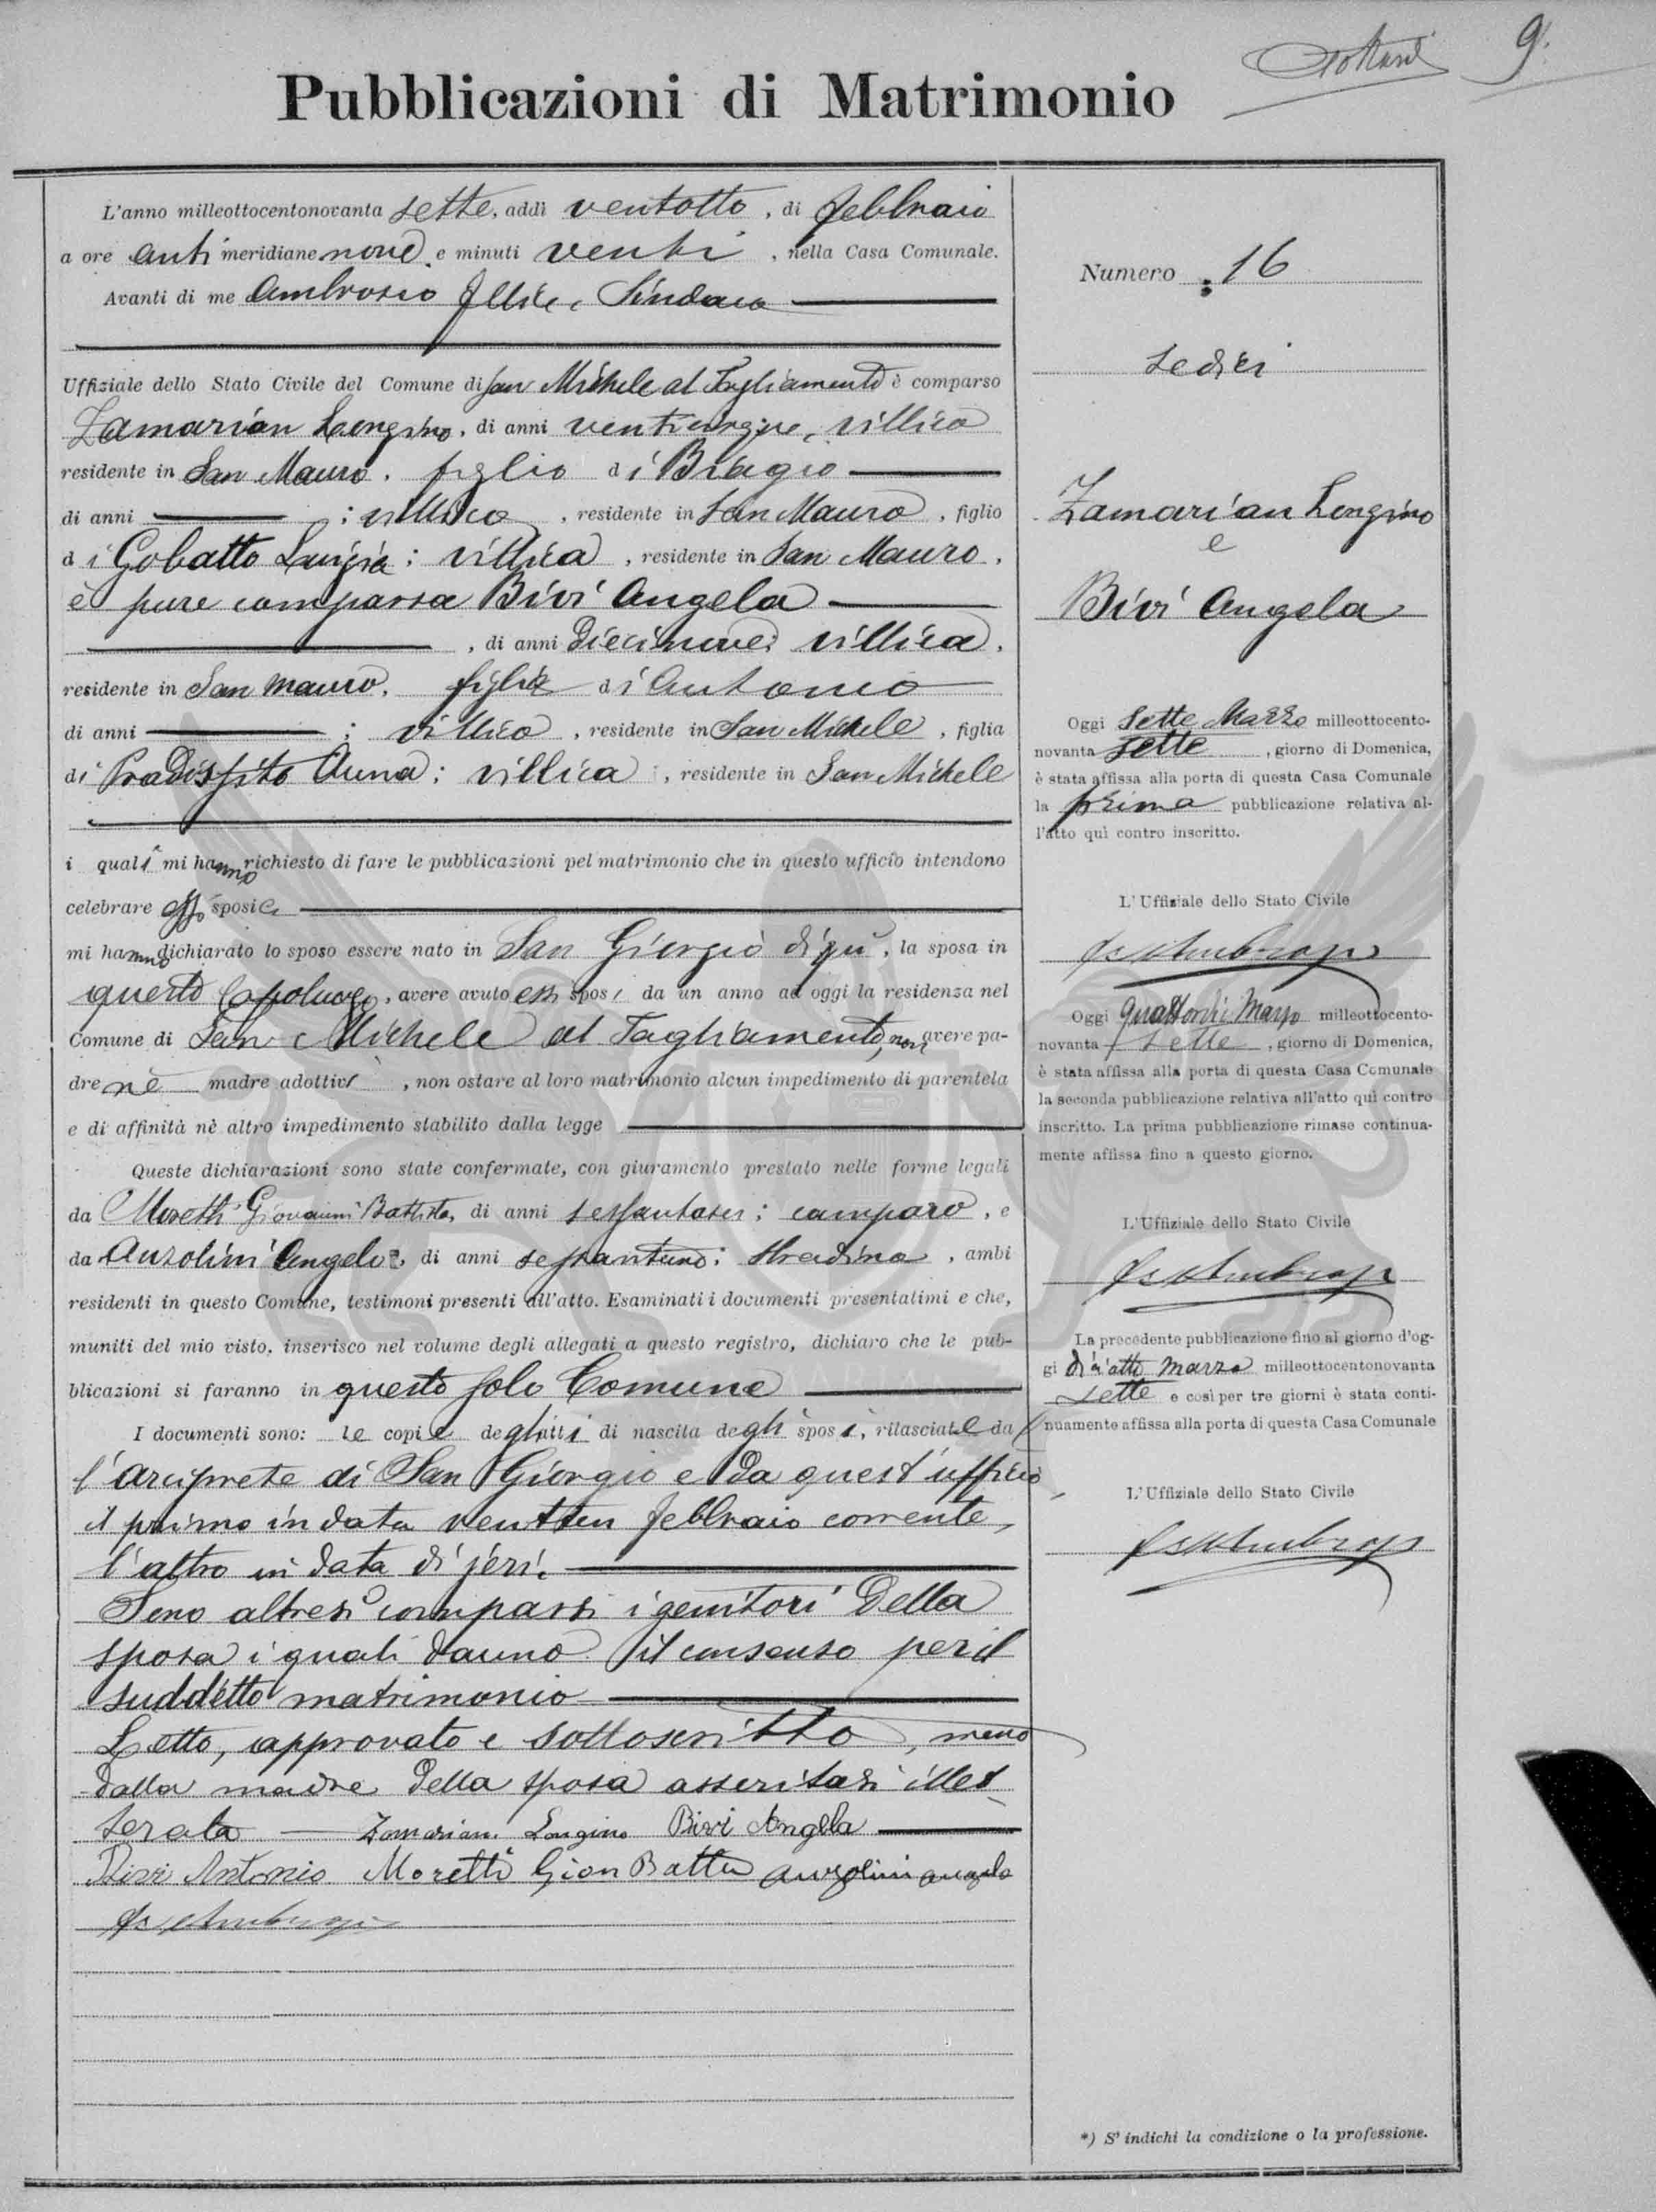 9.
Pubblicazioni di Matrimonio
L'anno milleottocentonovanta sette, addì ventotto, di febbraio
a ore anti meridiane nove, e minuti venti, nella Casa Comunale.
Avanti di me Ambrosio Sindaco
Uffiziale dello Stato Civile del Comune di San Michele al Tagliamento è comparso
Zamarian Longino, di anni venticinque, villico
residente in San Mauro, figlio di Biagio
di anni ; villico, residente in San Mauro, figlio
di Gobatto Luigia; villica, residente in San Mauro.
è pure comparsa Bivi Angela
, di anni diecinove; villica,
residente in San Mauro, figlia di Antonio
di anni ; villico, residente in San Michele, figlia
di Pradissito Anna; villica, residente in San Michele
i quali mi hanno richiesto di fare le pubblicazioni pel matrimonio che in questo ufficio intendono
celebrare essi sposi
mi hanno dichiarato lo sposo essere nato in San Giorgio di quì, la sposa in
questo Capoluogo, avere avuto essi sposi da un anno ad oggi la residenza nel
Comune di San Michele al Tagliamento, non avere pa-
dre nè madre adottivi, non ostare al loro matrimonio alcun impedimento di parentela
e di affinità nè altro impedimento stabilito dalla legge
Queste dichiarazioni sono state confermate, con giuramento prestato nelle forme legali
da Moretti Giovanni Battista, di anni sessantasei; camparo, e
da Anzolini Angelo, di anni sessantuno; stradino, ambi
residenti in questo Comune, testimoni presenti all'atto. Esaminati i documenti presentatimi e che,
muniti del mio visto, inserisco nel volume degli allegati a questo registro, dichiaro che le pub-
blicazioni si faranno in questo solo Comune
I documenti sono: le copie degli atti di nascita degli sposi, rilasciate dal
l'arciprete di San Giorgio e da quest'ufficio
il primo in data febbraio corrente,
l'altro in data di jeri.
Sono altresì comparsi i genitori della
sposa i quali danno il consenso per il
suddetto matrimonio
Letto, approvato e sottoscritto, meno
dalla madre della sposa asseritasi illet-
terata Zamarian Longino Bivi Angela
Bivi Antonio Moretti Gion Batta Anzolini Angelo
Numero 16
sedici
Zamarian Longino
e
Bivi Angela
Oggi sette Marzo milleottocento-
novanta sette, giorno di Domenica,
è stata affissa alla porta di questa Casa Comunale
la prima pubblicazione relativa al-
l'atto quì contro inscritto.
L'Uffiziale dello Stato Civile
Oggi quattordici Marzo milleottocento-
novanta sette, giorno di Domenica,
è stata affissa alla porta di questa Casa Comunale
la seconda pubblicazione relativa all'atto quì contro
inscritto. La prima pubblicazione rimase continua-
mente affissa fino a questo giorno.
L'Uffiziale dello Stato Civile
La precedente pubblicazione fino al giorno d'og-
gi marzo milleottocentonovanta
sette e così per tre giorni è stata conti-
nuamente affissa alla porta di questa Casa Comunale
L'Uffiziale dello Stato Civile
*) S'indichi la condizione o la professione.